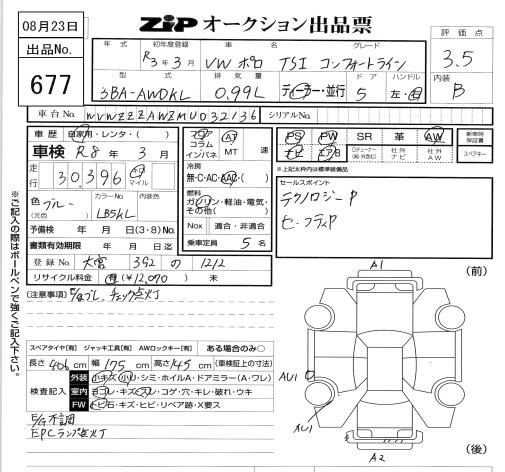 08月23日
ZIP オークション出品票
出品No.
677
年 式 初年度登録 車 名 グレード
R3年3月 VW ポロ TSI コンフォートライン
評 価 点
3.5
型 式 排 気 量 ドア ハンドル
3BA-AWDKL 0.99L ディーラー・並行 5 左・右
内装
B
車台No. WVWZZZAWZMU032136 シリアルNo.
車 歴 自家用・レンタ・( )
車検 R8 年 3 月
フロア コラム インパネ AT MT 速
PS PW SR 革 AW
ナビ エアB 社外ナビ 社外AW
新車時保証書
スペアキー
※上記太枠内は標準装備品
走行 30,396 km マイル
冷房
無・C・AC・AAC・( )
色 ブルー (元色)
カラーNo LB5KL 内装色
燃料
ガソリン・軽油・電気・その他( )
セールスポイント
テクノロジーP
セーフティP
予備検 年 月 日(3・8)No.
Nox 適合・非適合
書類有効期限 年 月 日迄
乗車定員 5 名
登録No. 大宮 392 の 1212
リサイクル料金 有(¥12,070) 未
(注意事項)
チェック点灯
※ご記入の際はボールペンで強くご記入下さい。
スペアタイヤ[有] ジャッキ工具[有] AWロックキー[有] ある場合のみ○
長さ 406 cm 幅 175 cm 高さ 145 cm (車検証上の寸法)
検査記入
外装 小キズ・小凹・シミ・ホイルA・ドアミラー(A・ワレ)
室内 ヨゴレ・キズ・スレ・コゲ・穴・キレ・破れ・ウキ
FW トビ石・キズ・ヒビ・リペア跡・X要ス
E/G不調
EPCランプ点灯
(前)
A1
AU1
AU1
A2
(後)